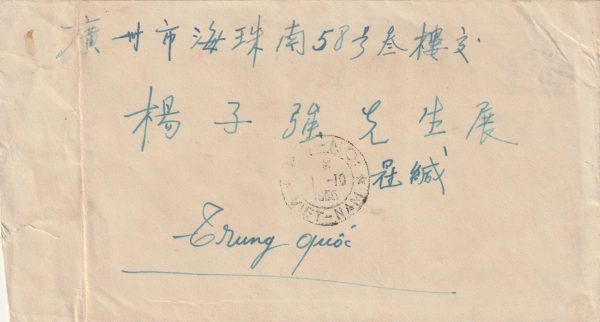 廣州市海珠南58号叁樓交
楊子強先生展
緘
HA-NOI
1 -10
VIET-NAM
Trung quốc